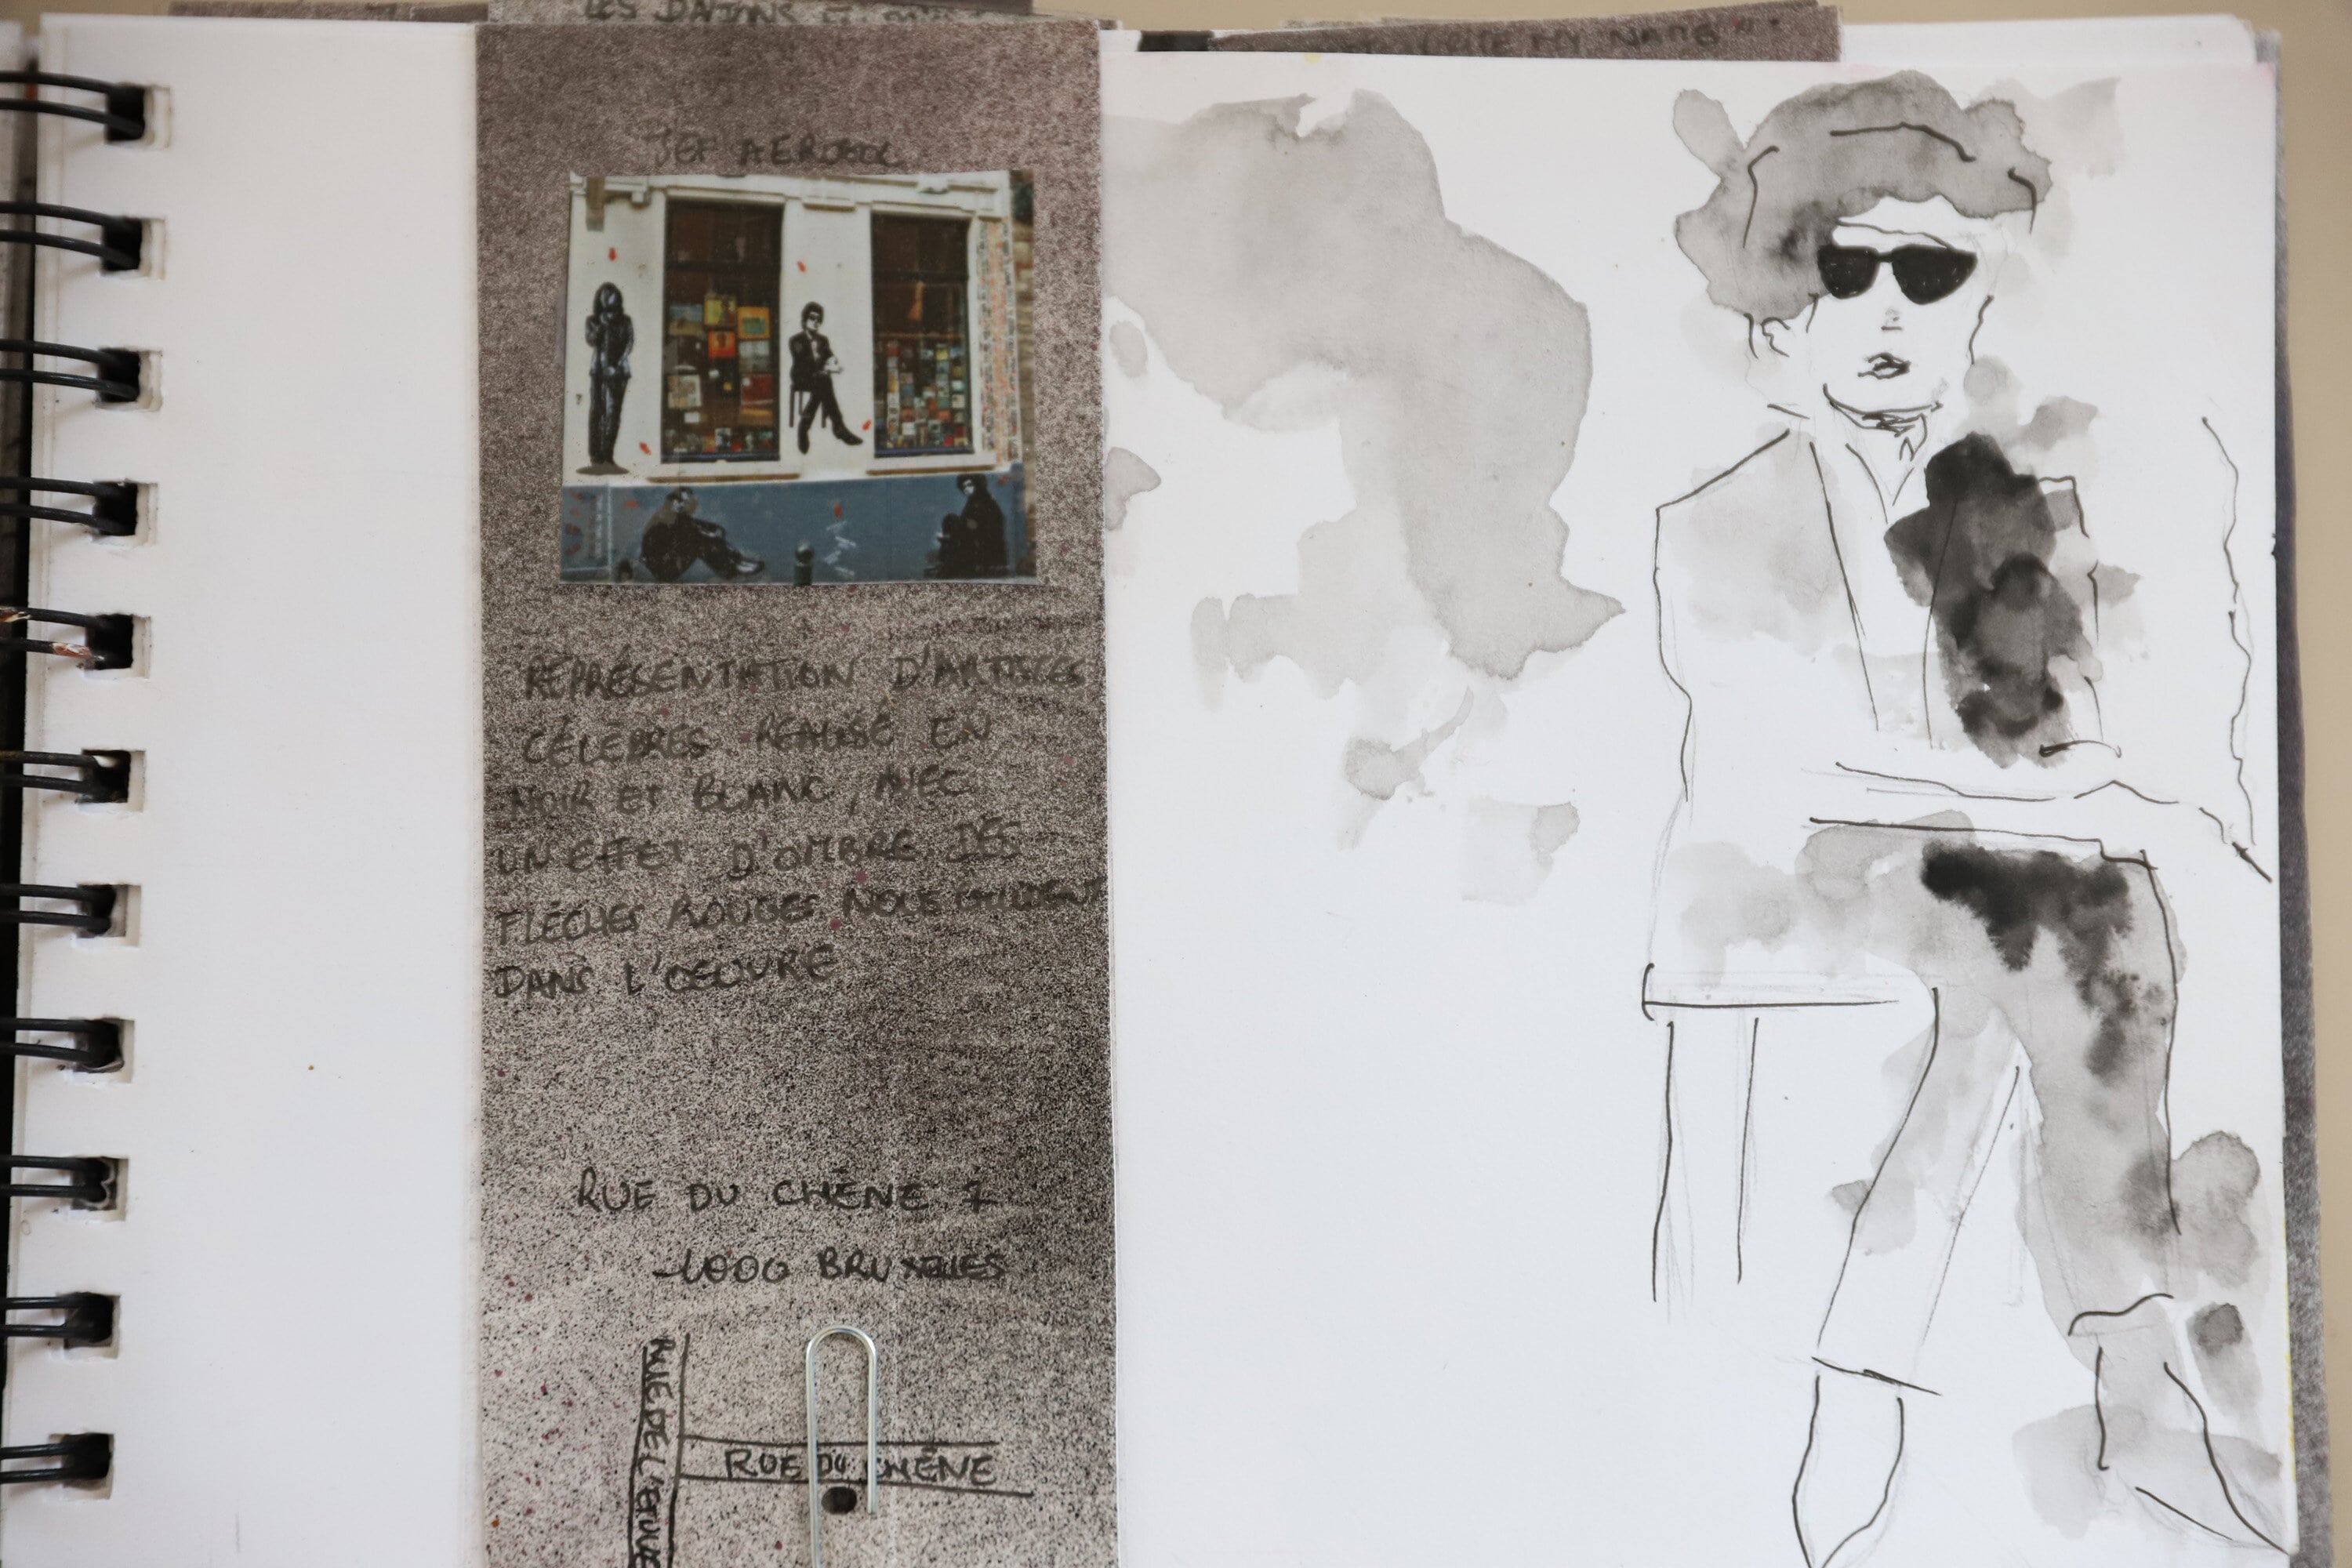 LES DALTONS ET
MY NAME
JEF AEROSOL
REPRÉSENTATION D'ARTISTES
CÉLÈBRES RÉALISÉ EN
NOIR ET BLANC, AVEC
UN EFFET D'OMBRE DES
FLÈCHES ROUGES NOUS GUIDENT
DANS L'OEUVRE
RUE DU CHÊNE 7
1000 BRUXELLES
RUE DE L'ETUVE
RUE DU CHÊNE